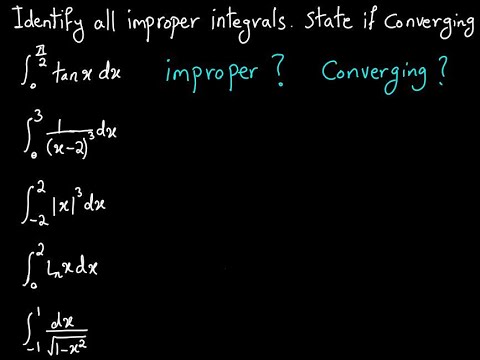 Identify all improper integrals. State if Converging
∫₀^(π/2) tan x dx improper? Converging?
∫₀³ 1/(x-2)³ dx
∫₋₂² |x|³ dx
∫₀² Ln x dx
∫₋₁¹ dx/√(1-x²)